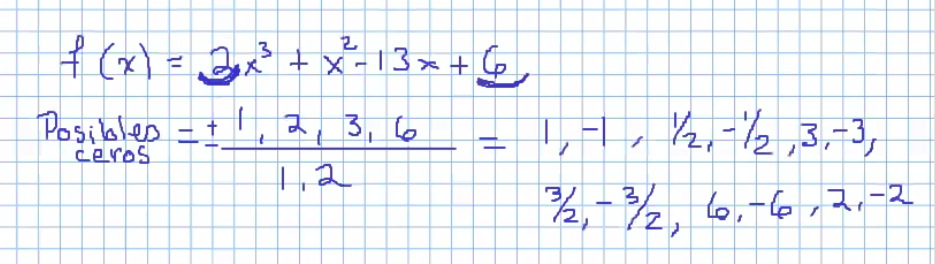 f(x) = 2x³ + x² - 13x + 6
Posibles ceros = ± 1, 2, 3, 6 / 1, 2 = 1, -1, 1/2, -1/2, 3, -3,
3/2, -3/2, 6, -6, 2, -2